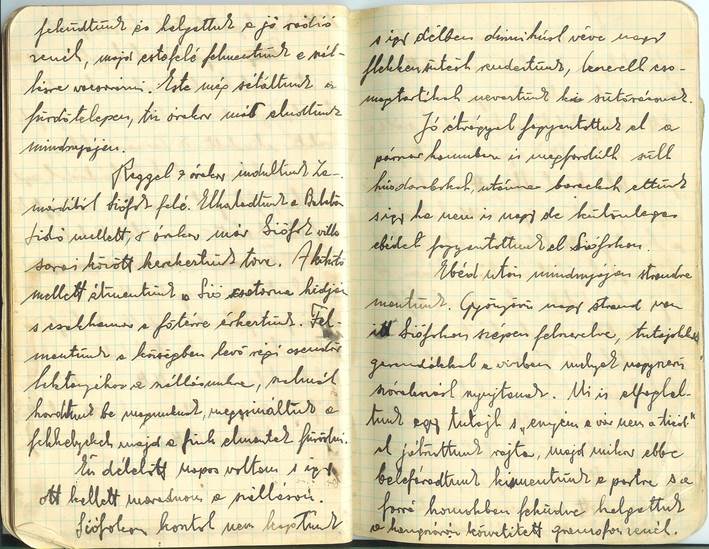 feküdtünk és helgettük a jó rádió
zenét, majd estefelé felmentünk a szál-
lásra vacsorázni. Este még sétáltunk a
fürdőtelepen, tíz órakor már aludtunk
mindnyájan.
Reggel 7 órakor indultunk Za-
márdiból Siófok felé. Elhaladtunk a Balaton
lidó mellett, 8 órakor már Siófok villa
sorai között kerekeztünk tova. A
mellett átmentünk a Sió csatorna hídján
s csakhamar a főtérre érkeztünk. Fel-
mentünk a községben levő régi csendőr
laktanyába a szállásunkra, szalmát
hordtunk be magunknak, megcsináltuk a
fekhelyeket majd a fiúk elmentek fürödni.
Én délelőtt napos voltam s így
ott kellett maradnom a szálláson.
Siófokon kosztot nem kaptunk
s így délben dinnihust véve nagy
flekkensütést rendeztünk,
nevertünk kis sütőrésznek.
Jó étvággyal fogyasztottuk el a
párszor hamuban is megfordult sült
húsdarabokat, utánna barackot ettünk
s így ha nem is nagy de különleges
ebédet fogyasztottunk el Siófokon.
Ebéd után mindnyájan strandra
mentünk. Gyönyörű nagy strand van
itt Siófokon szépen felszerelve, tutajokkal
gerendákkal a vízben melyek nagyszerű
szórakozást nyujtanak. Mi is elfoglal-
tunk egy tutajt s „enyém a vár nem a tiéd"
et játszottunk rajta, majd mikor ebbe
belefáradtunk kimentünk a partra s a
forró homokban feküdve helgettük
a hangszórón közvetített gramofon zenét.